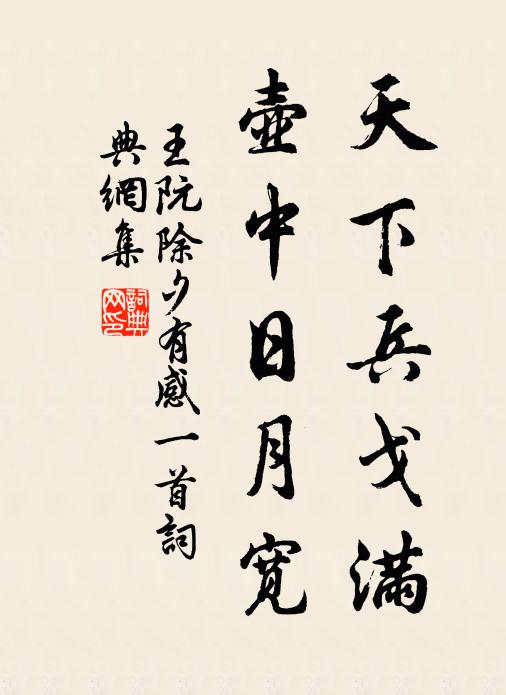 天下兵戈滿
壺中日月寬
王阮除夕有感一首詞
典網集
詞典網印